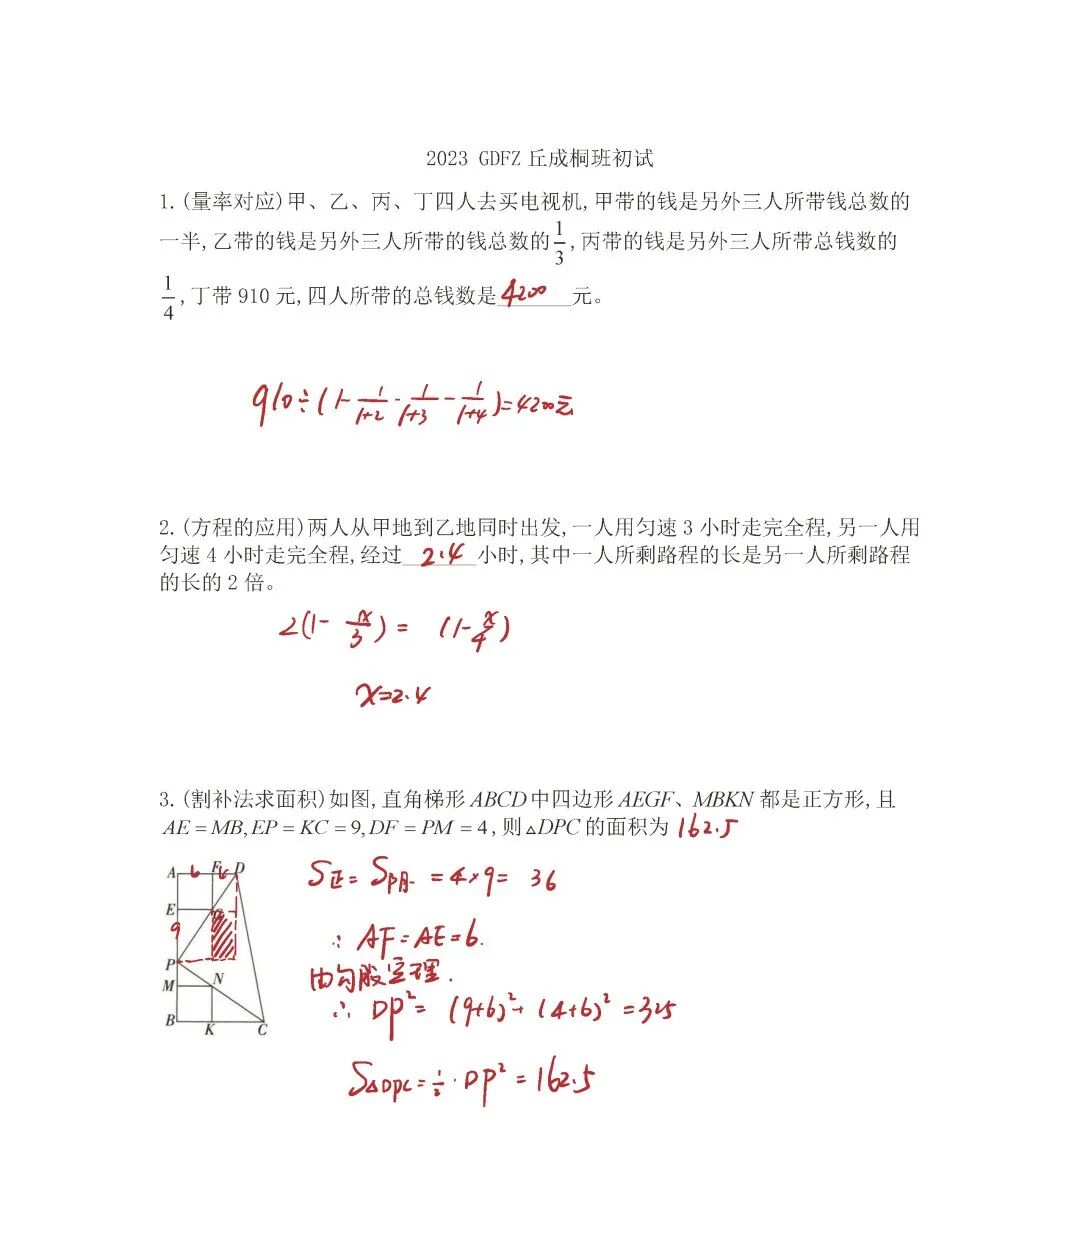 2023 GDFZ 丘成桐班初试
1.(量率对应)甲、乙、丙、丁四人去买电视机,甲带的钱是另外三人所带钱总数的
一半,乙带的钱是另外三人所带的钱总数的1/3,丙带的钱是另外三人所带总钱数的
1/4,丁带 910 元,四人所带的总钱数是 4200 元。
910÷(1-1/(1+2)-1/(1+3)-1/(1+4))=4200元
2.(方程的应用)两人从甲地到乙地同时出发,一人用匀速 3 小时走完全程,另一人用
匀速 4 小时走完全程,经过 2.4 小时,其中一人所剩路程的长是另一人所剩路程
的长的 2 倍。
2(1-x/3)=(1-x/4)
x=2.4
3.(割补法求面积)如图,直角梯形 ABCD 中四边形 AEGF、MBKN 都是正方形,且
AE=MB,EP=KC=9,DF=PM=4,则△DPC 的面积为 162.5
A 6 F 6 D
E
9
P
M N
B K C
S正=S阴=4×9=36
∴ AF=AE=6.
由勾股定理.
∴ DP²=(9+6)²+(4+6)²=325
S△DPC=1/2·DP²=162.5